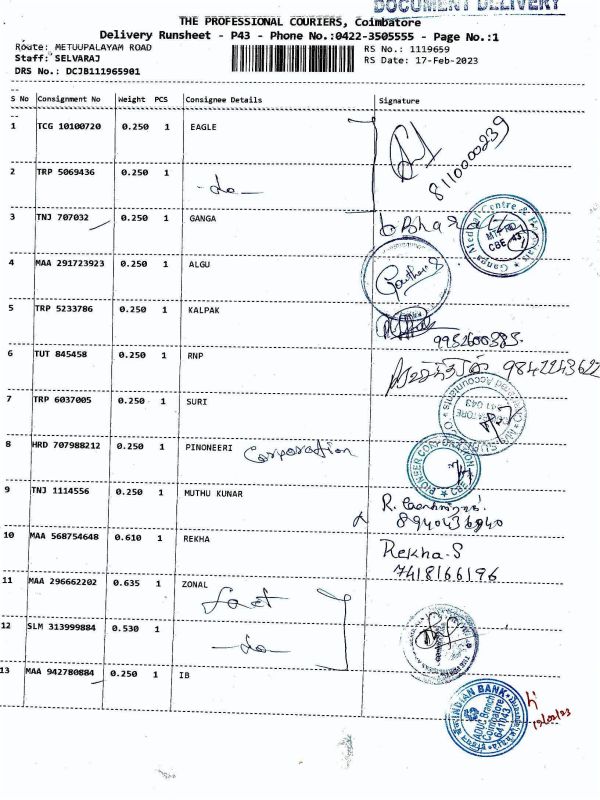 DOCUMENT DELIVERY
THE PROFESSIONAL COURIERS, Coimbatore
Delivery Runsheet - P43 - Phone No.:0422-3505555 - Page No.:1
Route: METUUPALAYAM ROAD RS No.: 1119659
Staff: SELVARAJ RS Date: 17-Feb-2023
DRS No.: DCJB111965901
S No Consignment No Weight PCS Consignee Details Signature
1 TCG 10100720 0.250 1 EAGLE
8110000239
2 TRP 5069436 0.250 1 -do-
3 TNJ 707032 0.250 1 GANGA
4 MAA 291723923 0.250 1 ALGU
5 TRP 5233786 0.250 1 KALPAK
9952600385
6 TUT 845458 0.250 1 RNP 9842243622
7 TRP 6037005 0.250 1 SURI
8 HRD 707988212 0.250 1 PINONEERI Corporation
PIONEER CORPORATION CBE
9 TNJ 1114556 0.250 1 MUTHU KUNAR R.
8940436940
10 MAA 568754648 0.610 1 REKHA Rekha.S
7418166196
11 MAA 296662202 0.635 1 ZONAL
12 SLM 313999884 0.530 1 -do-
13 MAA 942780884 0.250 1 IB
INDIAN BANK
Branch
Coimbatore
641043